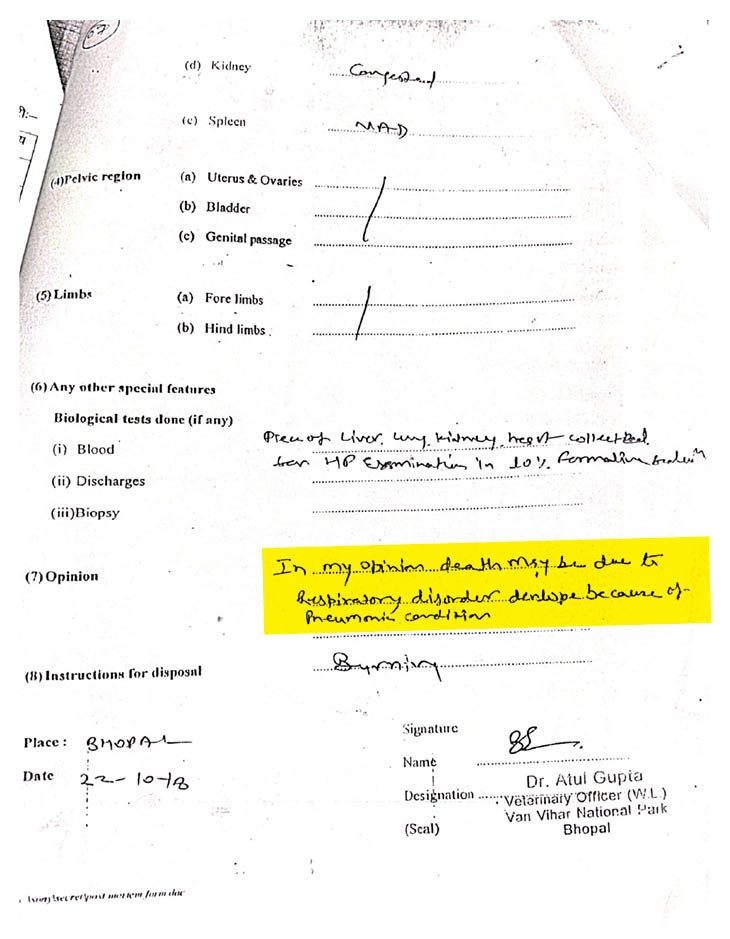 67
(d) Kidney Congested
(e) Spleen NAD
(4) Pelvic region (a) Uterus & Ovaries
(b) Bladder
(c) Genital passage
(5) Limbs (a) Fore limbs
(b) Hind limbs
(6) Any other special features
Biological tests done (if any)
(i) Blood Piece of Liver, lung, kidney, heart collected
for HP Examination in 10% Formaline
(ii) Discharges
(iii) Biopsy
(7) Opinion In my opinion death may be due to
Respiratory disorder devlope because of
Pneumonic condition
(8) Instructions for disposal Burning
Place : BHOPAL
Date 22-10-18
Signature
Name
Dr. Atul Gupta
Designation Veterinary Officer (W.L.)
Van Vihar National Park
(Seal) Bhopal